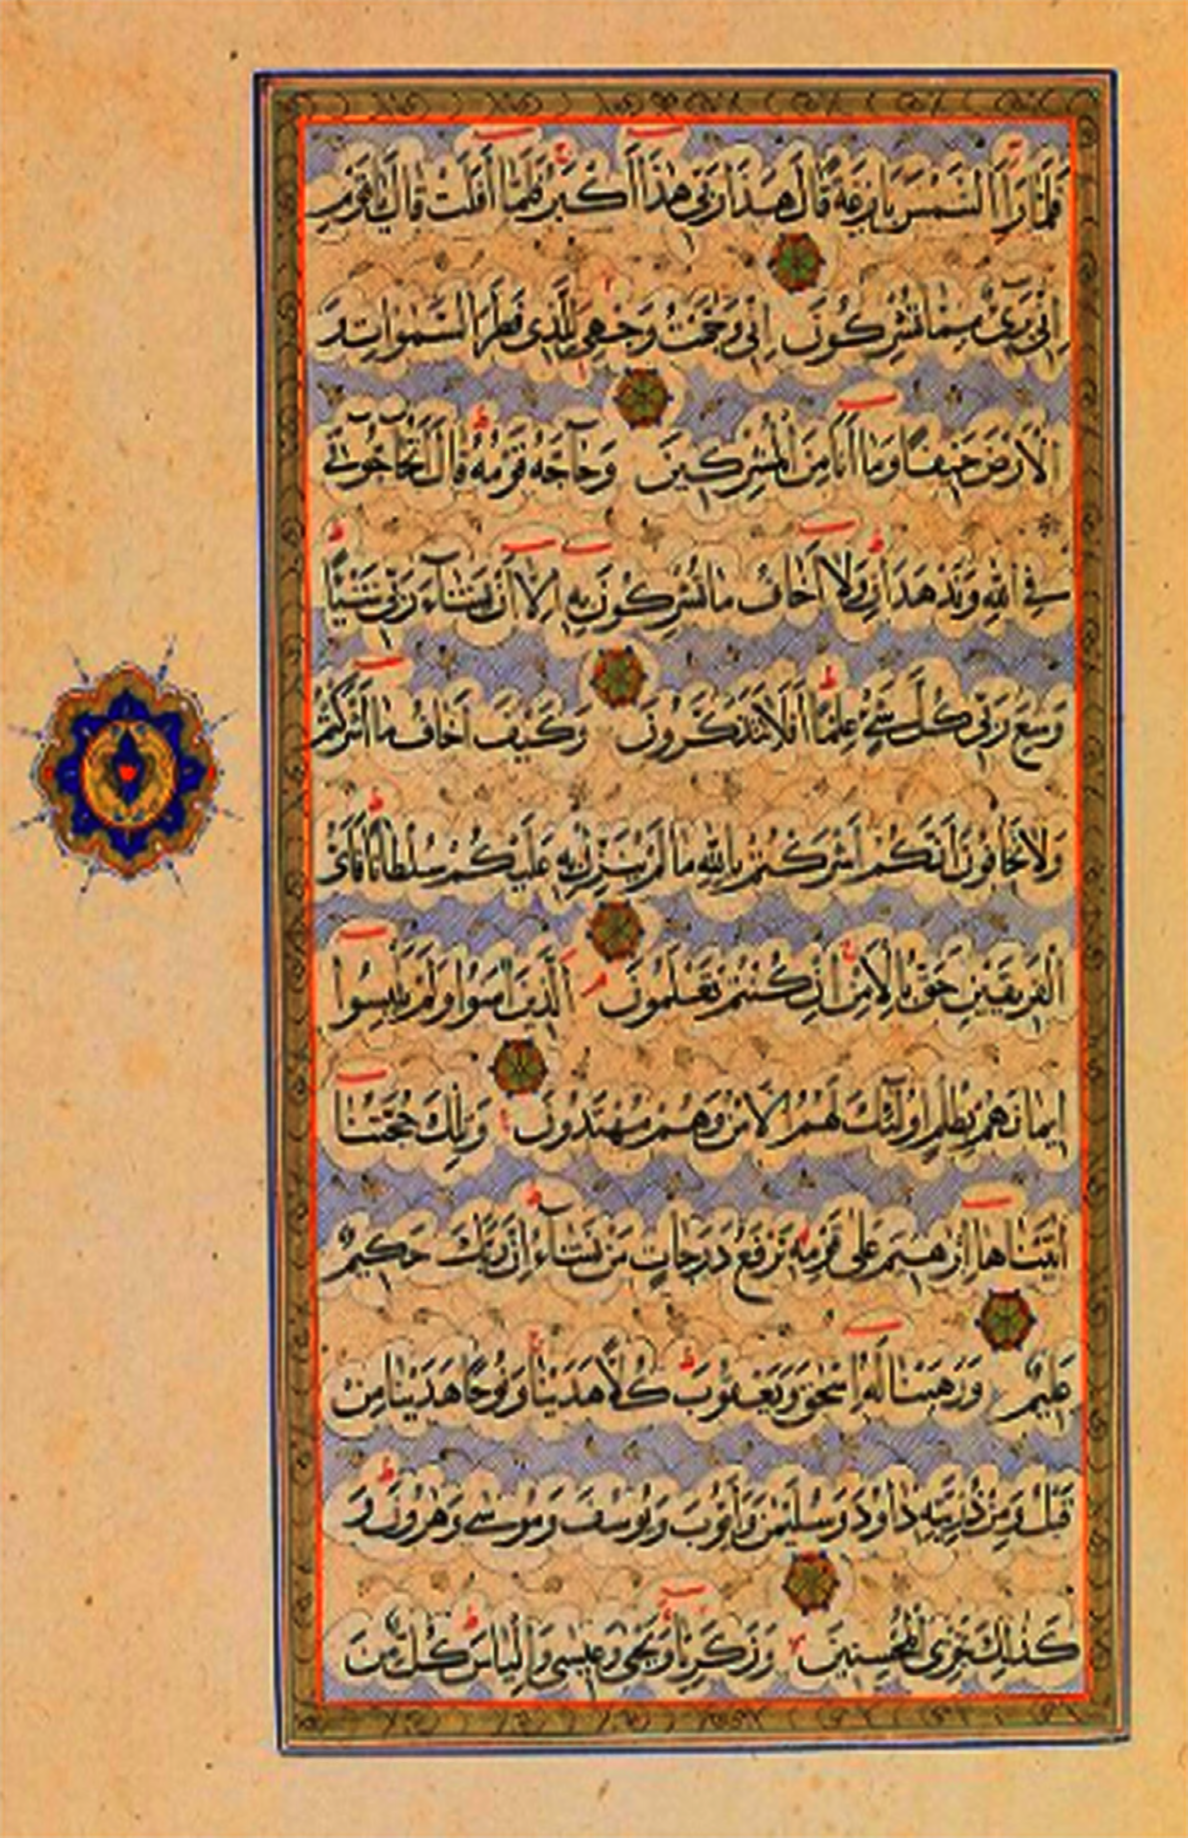 فَلَمَّا رَاَ الشَّمْسَ بَازِغَةً قَالَ هٰذَا رَبِّي هٰذَا اَكْبَرُ فَلَمَّا اَفَلَتْ قَالَ يَا قَوْمِ
اِنِّي بَرِيءٌ مِمَّا تُشْرِكُونَ اِنِّي وَجَّهْتُ وَجْهِيَ لِلَّذِي فَطَرَ السَّمٰوَاتِ وَ
الْاَرْضَ حَنِيفًا وَمَا اَنَا مِنَ الْمُشْرِكِينَ وَحَاجَّهُ قَوْمُهُ قَالَ اَتُحَاجُّونِّي
فِي اللّٰهِ وَقَدْ هَدَانِ وَلَا اَخَافُ مَا تُشْرِكُونَ بِهِ اِلَّا اَنْ يَشَاءَ رَبِّي شَيْئًا
وَسِعَ رَبِّي كُلَّ شَيْءٍ عِلْمًا اَفَلَا تَتَذَكَّرُونَ وَكَيْفَ اَخَافُ مَا اَشْرَكْتُمْ
وَلَا تَخَافُونَ اَنَّكُمْ اَشْرَكْتُمْ بِاللّٰهِ مَا لَمْ يُنَزِّلْ بِهِ عَلَيْكُمْ سُلْطَانًا فَاَيُّ
الْفَرِيقَيْنِ اَحَقُّ بِالْاَمْنِ اِنْ كُنْتُمْ تَعْلَمُونَ اَلَّذِينَ اٰمَنُوا وَلَمْ يَلْبِسُوا
اِيمَانَهُمْ بِظُلْمٍ اُولٰئِكَ لَهُمُ الْاَمْنُ وَهُمْ مُهْتَدُونَ وَتِلْكَ حُجَّتُنَا
اٰتَيْنَاهَا اِبْرٰهِيمَ عَلٰى قَوْمِهِ نَرْفَعُ دَرَجَاتٍ مَنْ نَشَاءُ اِنَّ رَبَّكَ حَكِيمٌ
عَلِيمٌ وَوَهَبْنَا لَهُ اِسْحٰقَ وَيَعْقُوبَ كُلًّا هَدَيْنَا وَنُوحًا هَدَيْنَا مِنْ
قَبْلُ وَمِنْ ذُرِّيَّتِهِ دَاوُدَ وَسُلَيْمٰنَ وَاَيُّوبَ وَيُوسُفَ وَمُوسٰى وَهٰرُونَ وَ
كَذٰلِكَ نَجْزِي الْمُحْسِنِينَ وَزَكَرِيَّا وَيَحْيٰى وَعِيسٰى وَاِلْيَاسَ كُلٌّ مِنَ